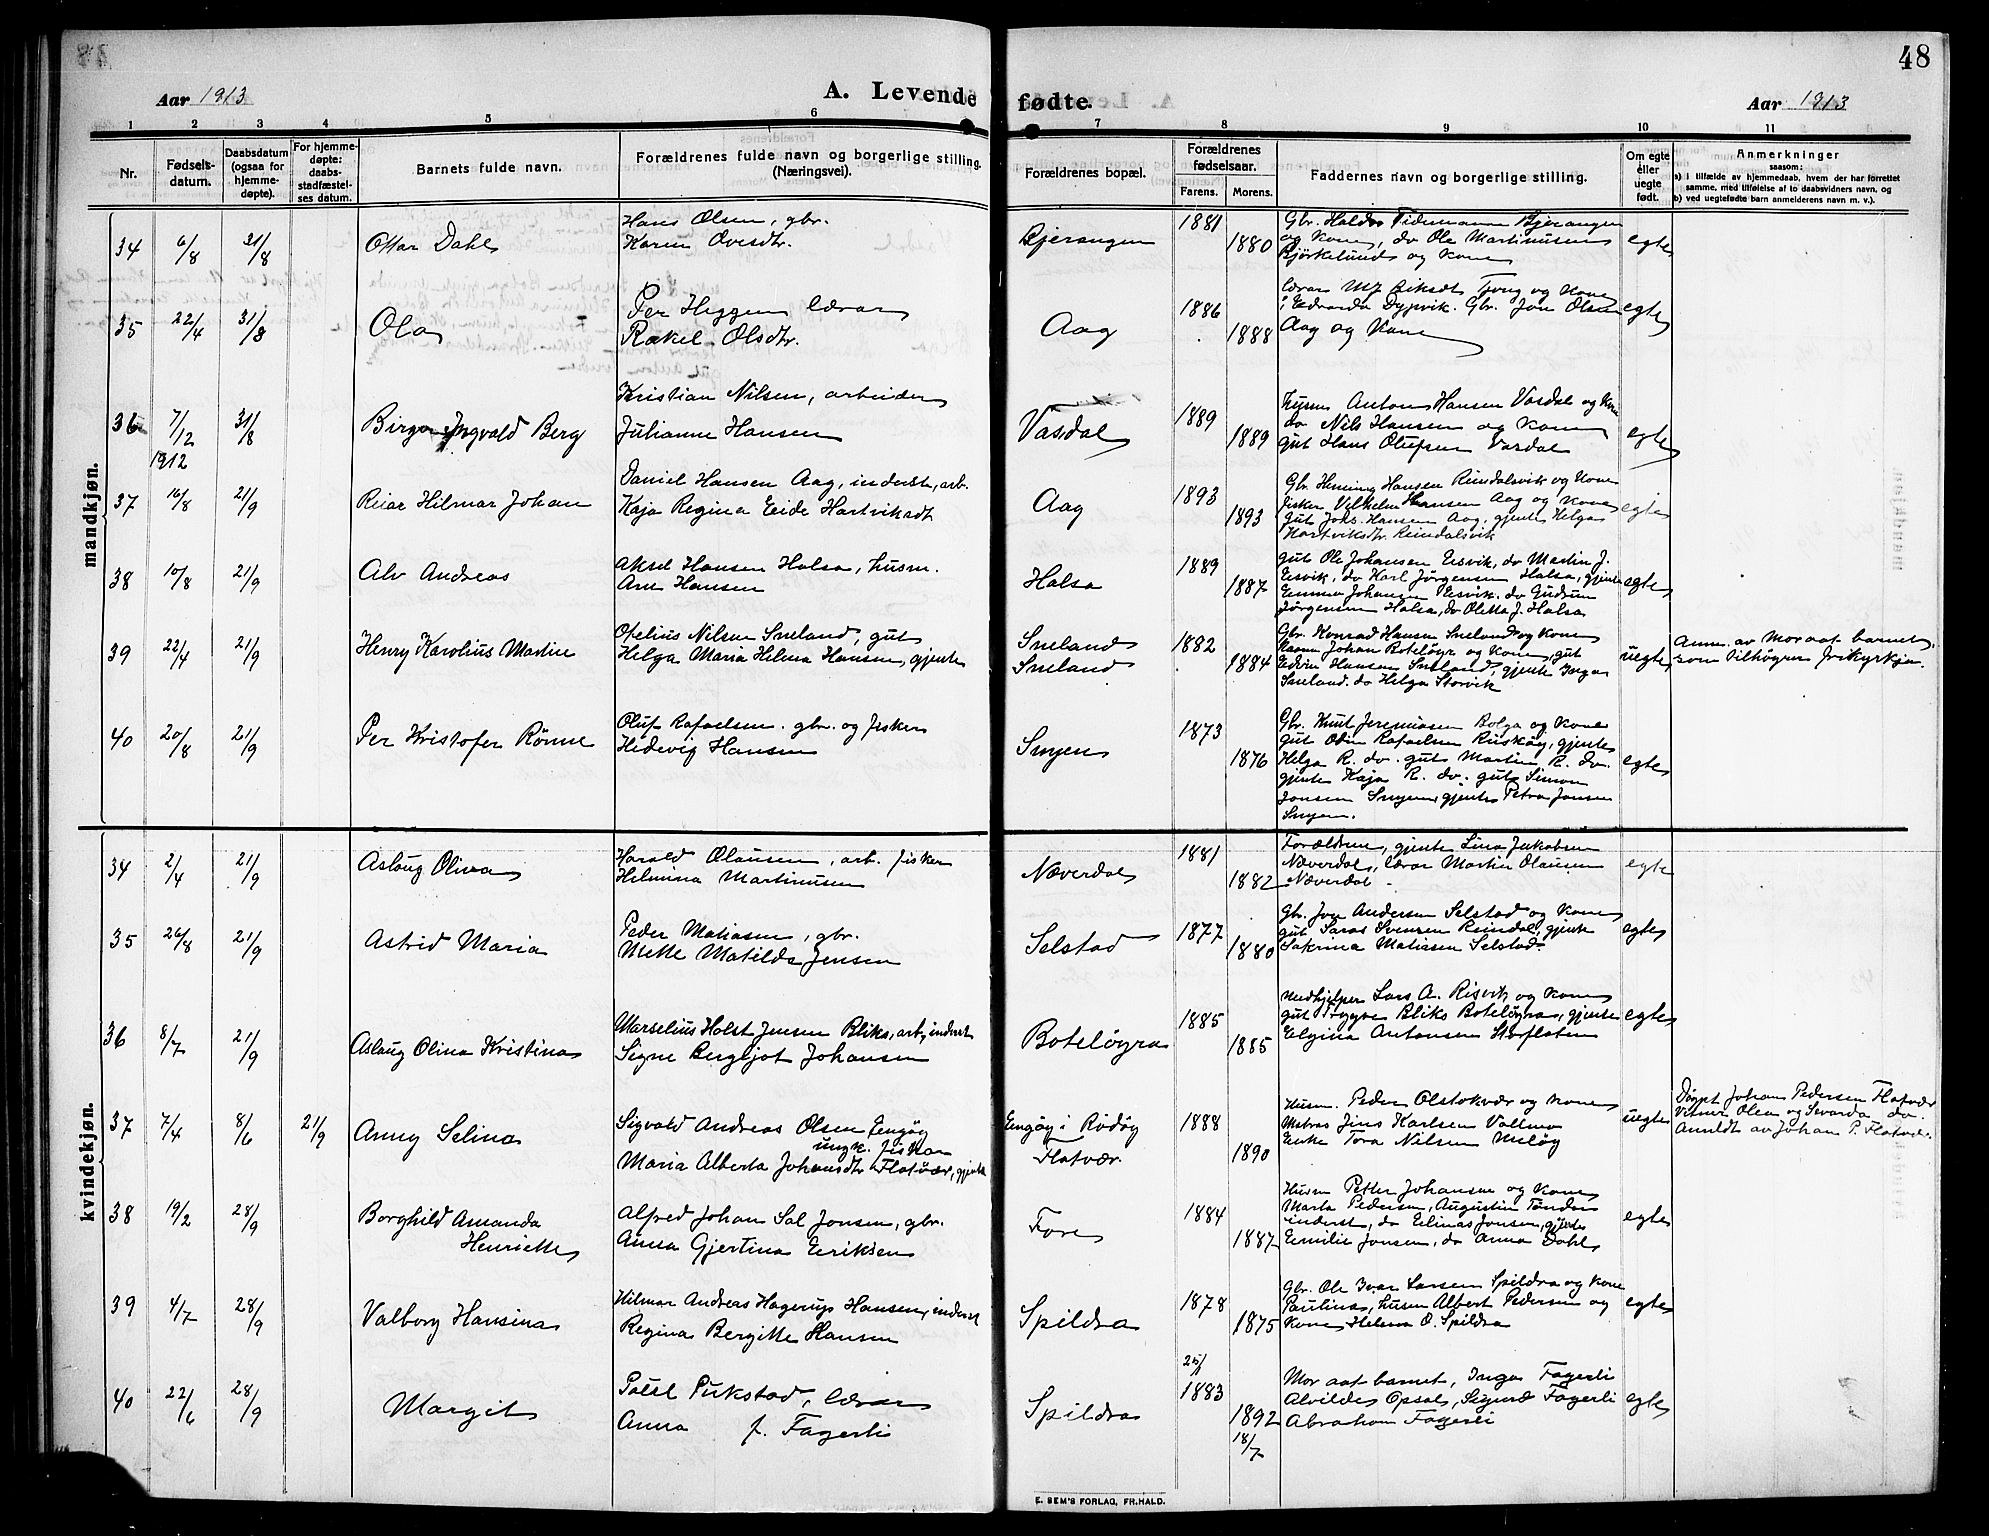 48
Aar 1913
A. Levende fødte.
Aar 1913
1 2 3 4 5 6 7 8 9 10 11
Nr.
Fødsels-
datum.
Daabsdatum
(ogsaa for
hjemme-
døpte).
For hjemme-
døpte:
daabs-
stadfæstel-
ses datum.
Barnets fulde navn.
Forældrenes fulde navn og borgerlige stilling.
(Næringsvei).
Forældrenes bopæl.
Forældrenes
fødselsaar.
Farens. Morens.
Faddernes navn og borgerlige stilling.
Om egte
eller
uegte
født.
Anmerkninger
saasom:
a) i tilfælde av hjemmedaab, hvem der har forrettet
samme, med tilføielse af to daabsvidners navn, og
b) ved uegtefødte barn anmelderens navn m. v.).
mandkjøn.
34 6/8 21/8 Ottar Dahl
Hans Olsen, gbr.
Karen Ovesdtr.
Bjerangen 1881 1880
Gbr. Haldor Tidemann Bjerangen
og kone, do Ole Martinusen
Bjørkelund og kone
egte
35 22/4 31/8 Ola
Per Heggen lærar
Rakel Olsdtr.
Aag 1886 1888
Lærar Tjong og kone
Edvarda Dypvik. Gbr. Jon Olsen
Aag og kone
egte
36 7/12 1912 31/8 Birger Ingvald Berg
Kristian Nilsen, arbeider
Julianne Hansen
Vasdal 1889 1889
husm Anton Hansen Vasdal og kone
do Nils Hansen og kone
gut Hans Olufsen Vasdal
egte
37 16/8 21/9 Reiar Hilmar Johan
Daniel Hansen Aag, inderst, arb.
Kaja Regina Eide Hartviksdt
Aag 1893 1893
Gbr. Heming Hansen Reindalsvik og kone
fisker Velhelm Hansen Aag og kone
Gut Johs. Hansen Aag, gjente Helga
Hartviksdtr Reindalsvik
egte
38 10/8 21/9 Alv Andreas
Aksel Hansen Halsa, husm.
Ane Hansen
Halsa 1889 1887
gut Ole Johansen Eisvik, do Martin J.
Eisvik, do Karl Jörgensen Halsa, gjente
Emma Johansen Eisvik. do Gudrun
Jörgensen Halsa, do Oletta J. Halsa
egte
39 22/4 21/9 Henry Karolius Martin
Ofelius Nilsen Sneland, gut
Helga Maria Helma Hansen, gjente
Sneland
Sneland
1882 1884
Gbr. Konrad Hansen Sneland og kone
Johan Boteløyr og kone, gut
Edvin Hansen Sneland, gjente Inga
Sneland. do Helga Storvik
uegte
Anm. av Mor aat barnet,
som tilhøyrer frikyrkja.
40 20/8 21/9 Per Kristofer Rönne
Oluf Rafaelsen. gbr. og fisker
Hedevig Hansen
Smyen 1873 1876
Gbr. Knut Jeremiasen Bolga og kone
gut Odin Rafaelsen Ruskøy, gjente
Helga R. do. gut Martin R. do.
gjente Kaja R. do. gut Simon
Jonsen Smyen, gjente Petra Jonsen
Smyen.
egte
kvindekjøn.
34 2/4 21/9 Aslaug Oliva
Harald Olausen, arb. fisker
Helmina Martinusen
Næverdal 1881 1882
Forældrene, gjente Lina Jakobsen
Næverdal, lærar Martin Olausen
Næverdal -
egte
35 26/8 21/9 Astrid Maria
Peder Matiasen, gbr.
Mette Matilde Jensen
Selstad 1877 1880
Gbr. Jon Andersen Selstad og kone
gut Saras Svensen Reindal, gjente
Satrina Matiasen Selstad
egte
36 8/7 21/9 Aslaug Olina Kristina
Marselius Holst Jensen Bliks, arb, inderst
Signe Bergljot Johansen
Boteløyra 1885 1885
Nedhjelper Lars A. Risvik og kone
gut Trygve Bliks Boteløyra, gjente
Elgina Antonsen Storflaten
egte
37 7/4 8/6 21/9 Anny Selina
Sigvald Andreas Olsen Eengøy
ungk. fisker
Maria Alberta Johansdtr Flatvær, gjente
Engøy i Rödøy
Flatvær.
1888 1890
Husm. Peder Olstokvær og kone
Matros Jens Karlsen Valvær
Enke Tora Nilsen Mesløy
uegte
Døypt Johan Pedersen Flatvær
Vitner Olea og Sevarda do.
Anmeldt av Johan P. Flatvær.
38 19/2 28/9 Borghild Amanda
Henriette
Alfred Johan Sal Jonsen, gbr.
Anna Gjertina Eeriksen
Fore 1884 1887
Husm Petter Johansen og kone
Marta Pedersen, Augustin Tönder
inderst, do Eelinas Jonsen, gjente
Eemilie Jonsen, do Anna Dahl
egte
39 4/7 28/9 Valborg Hansina
Hilmar Andreas Hagerup Hansen, inderst
Regina Bergitte Hansen
Spildra 1878 1875
Gbr. Ole Ivar Larsen Spildra og kone
Paulina, husm Albert Pedersen og
kone Helena O. Spildra
egte
40 22/6 28/9 Margit
Poul Pukstad, lærar
Anna f. Fagerli
Spildra 25/1 1883 1892 18/7
Mor aat barnet, Inga Fagerli
Alvilde Opsal, Sigurd Fagerli
Abraham Fagerli
egte
E. SEM'S FORLAG, FR.HALD.